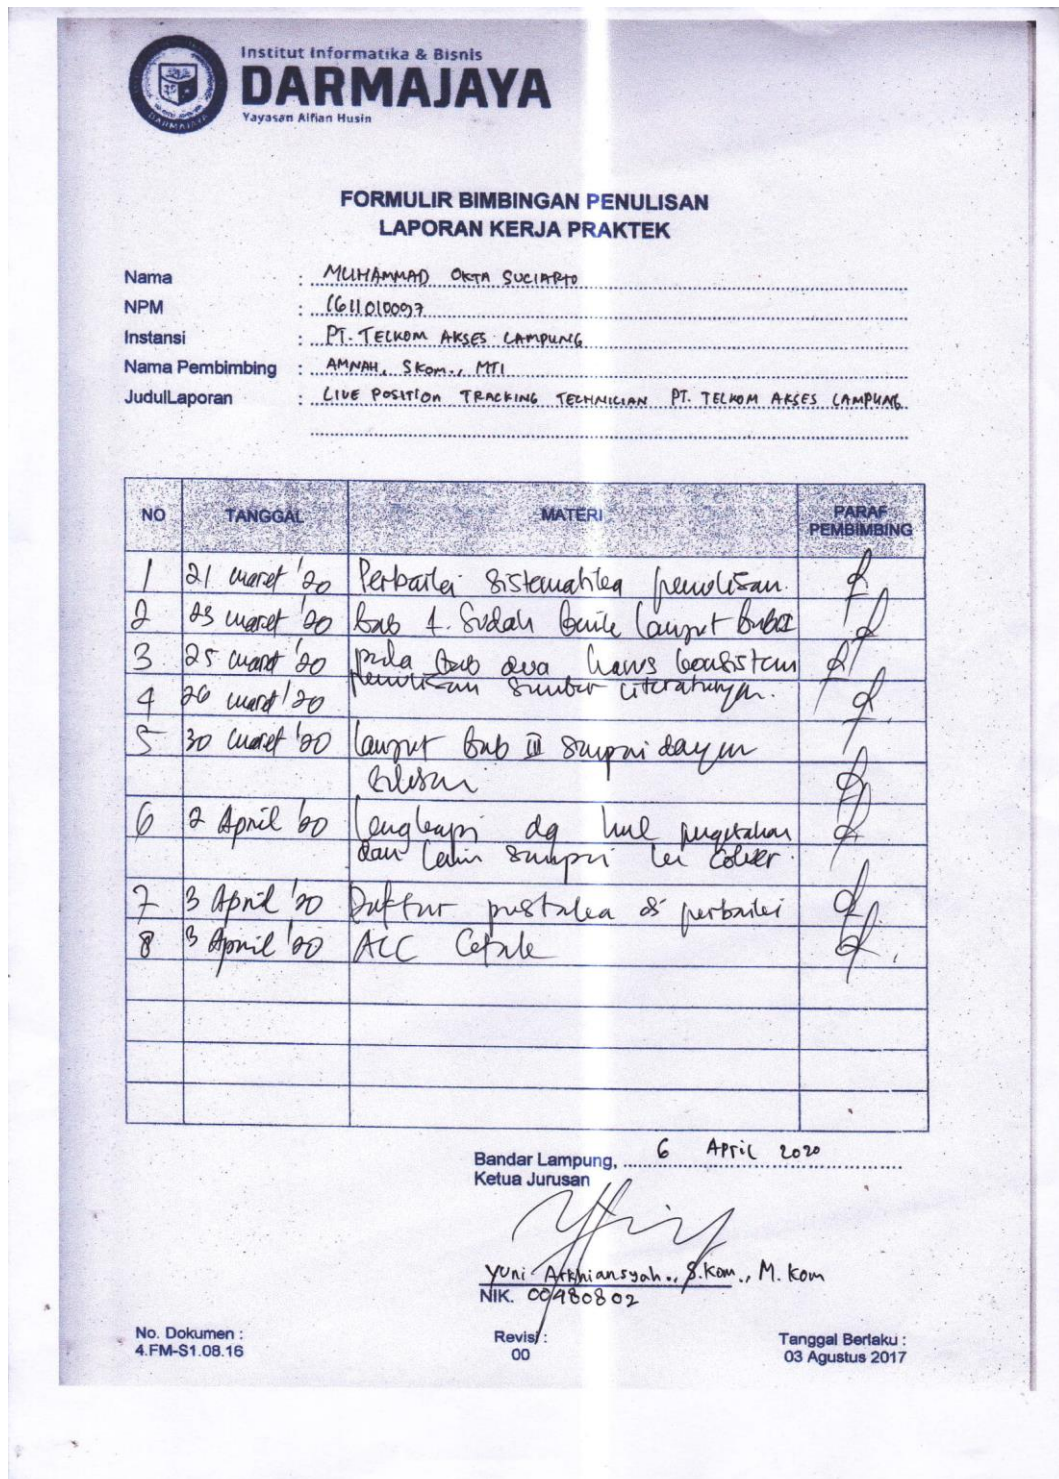 Institut Informatika & Bisnis
DARMAJAYA
Yayasan Alfian Husin
FORMULIR BIMBINGAN PENULISAN
LAPORAN KERJA PRAKTEK
Nama : MUHAMMAD OKTA SUCIARTO
NPM : 1611010097
Instansi : PT. TELKOM AKSES LAMPUNG
Nama Pembimbing : AMNAH, SKom., MTI
JudulLaporan : LIVE POSITION TRACKING TECHNICIAN PT. TELKOM AKSES LAMPUNG
NO TANGGAL MATERI PARAF PEMBIMBING
1 21 maret '20 Perbaiki sistematika penulisan.
2 23 maret '20 Bab 1. Sudah baik lanjut Bab II
3 25 maret '20 pada Bab dua harus konsisten
4 26 maret '20 penulisan sumber literaturnya.
5 30 maret '20 lanjut Bab III sampai dengan
selesai
6 2 April '20 lengkapi dg
dan lain sampai ke cover.
7 3 April '20 Daftar pustaka di perbaiki
8 3 April '20 ACC Cetak
Bandar Lampung, 6 April 2020
Ketua Jurusan
Yuni Arkhiansyah., S.Kom., M.Kom
NIK. 00480802
No. Dokumen : Revisi : Tanggal Berlaku :
4.FM-S1.08.16 00 03 Agustus 2017